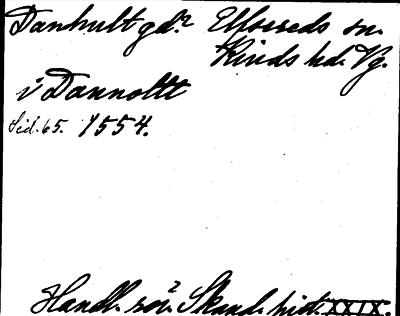 Danhult gd? Elfsereds sn.
Kinds hd. Vg.
i Dannoltt
Sid. 65. 1554.
Handl. rör. Skand. hist. XXIX.